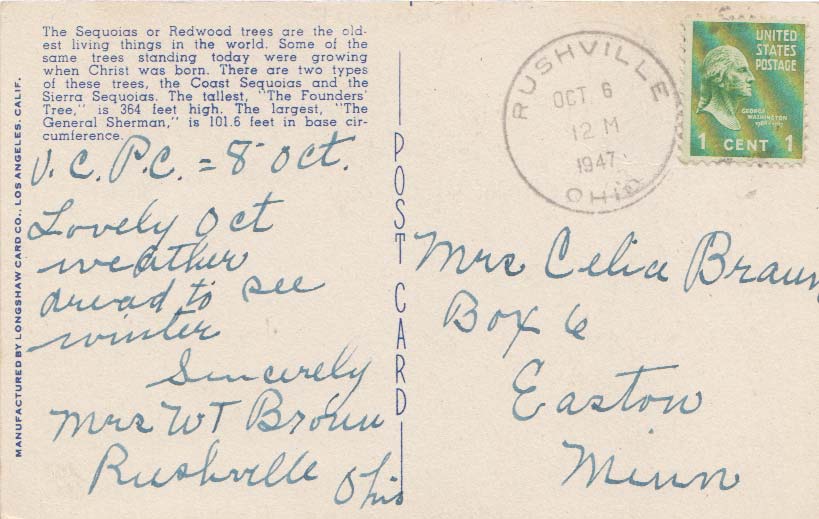 The Sequoias or Redwood trees are the old-
est living things in the world. Some of the
same trees standing today were growing
when Christ was born. There are two types
of these trees, the Coast Sequoias and the
Sierra Sequoias. The tallest, "The Founders'
Tree," is 364 feet high. The largest, "The
General Sherman," is 101.6 feet in base cir-
cumference.
V.C.P.C. = 8 Oct.
Lovely Oct
weather
dread to see
winter
Sincerely
Mrs WT Broun
Rushville
Ohio
MANUFACTURED BY LONGSHAW CARD CO., LOS ANGELES, CALIF.
POST CARD
RUSHVILLE
OCT 6
12 M
1947
OHIO
UNITED
STATES
POSTAGE
GEORGE
WASHINGTON
1 CENT 1
Mrs Celia Braun
Box 6
Easton
Minn